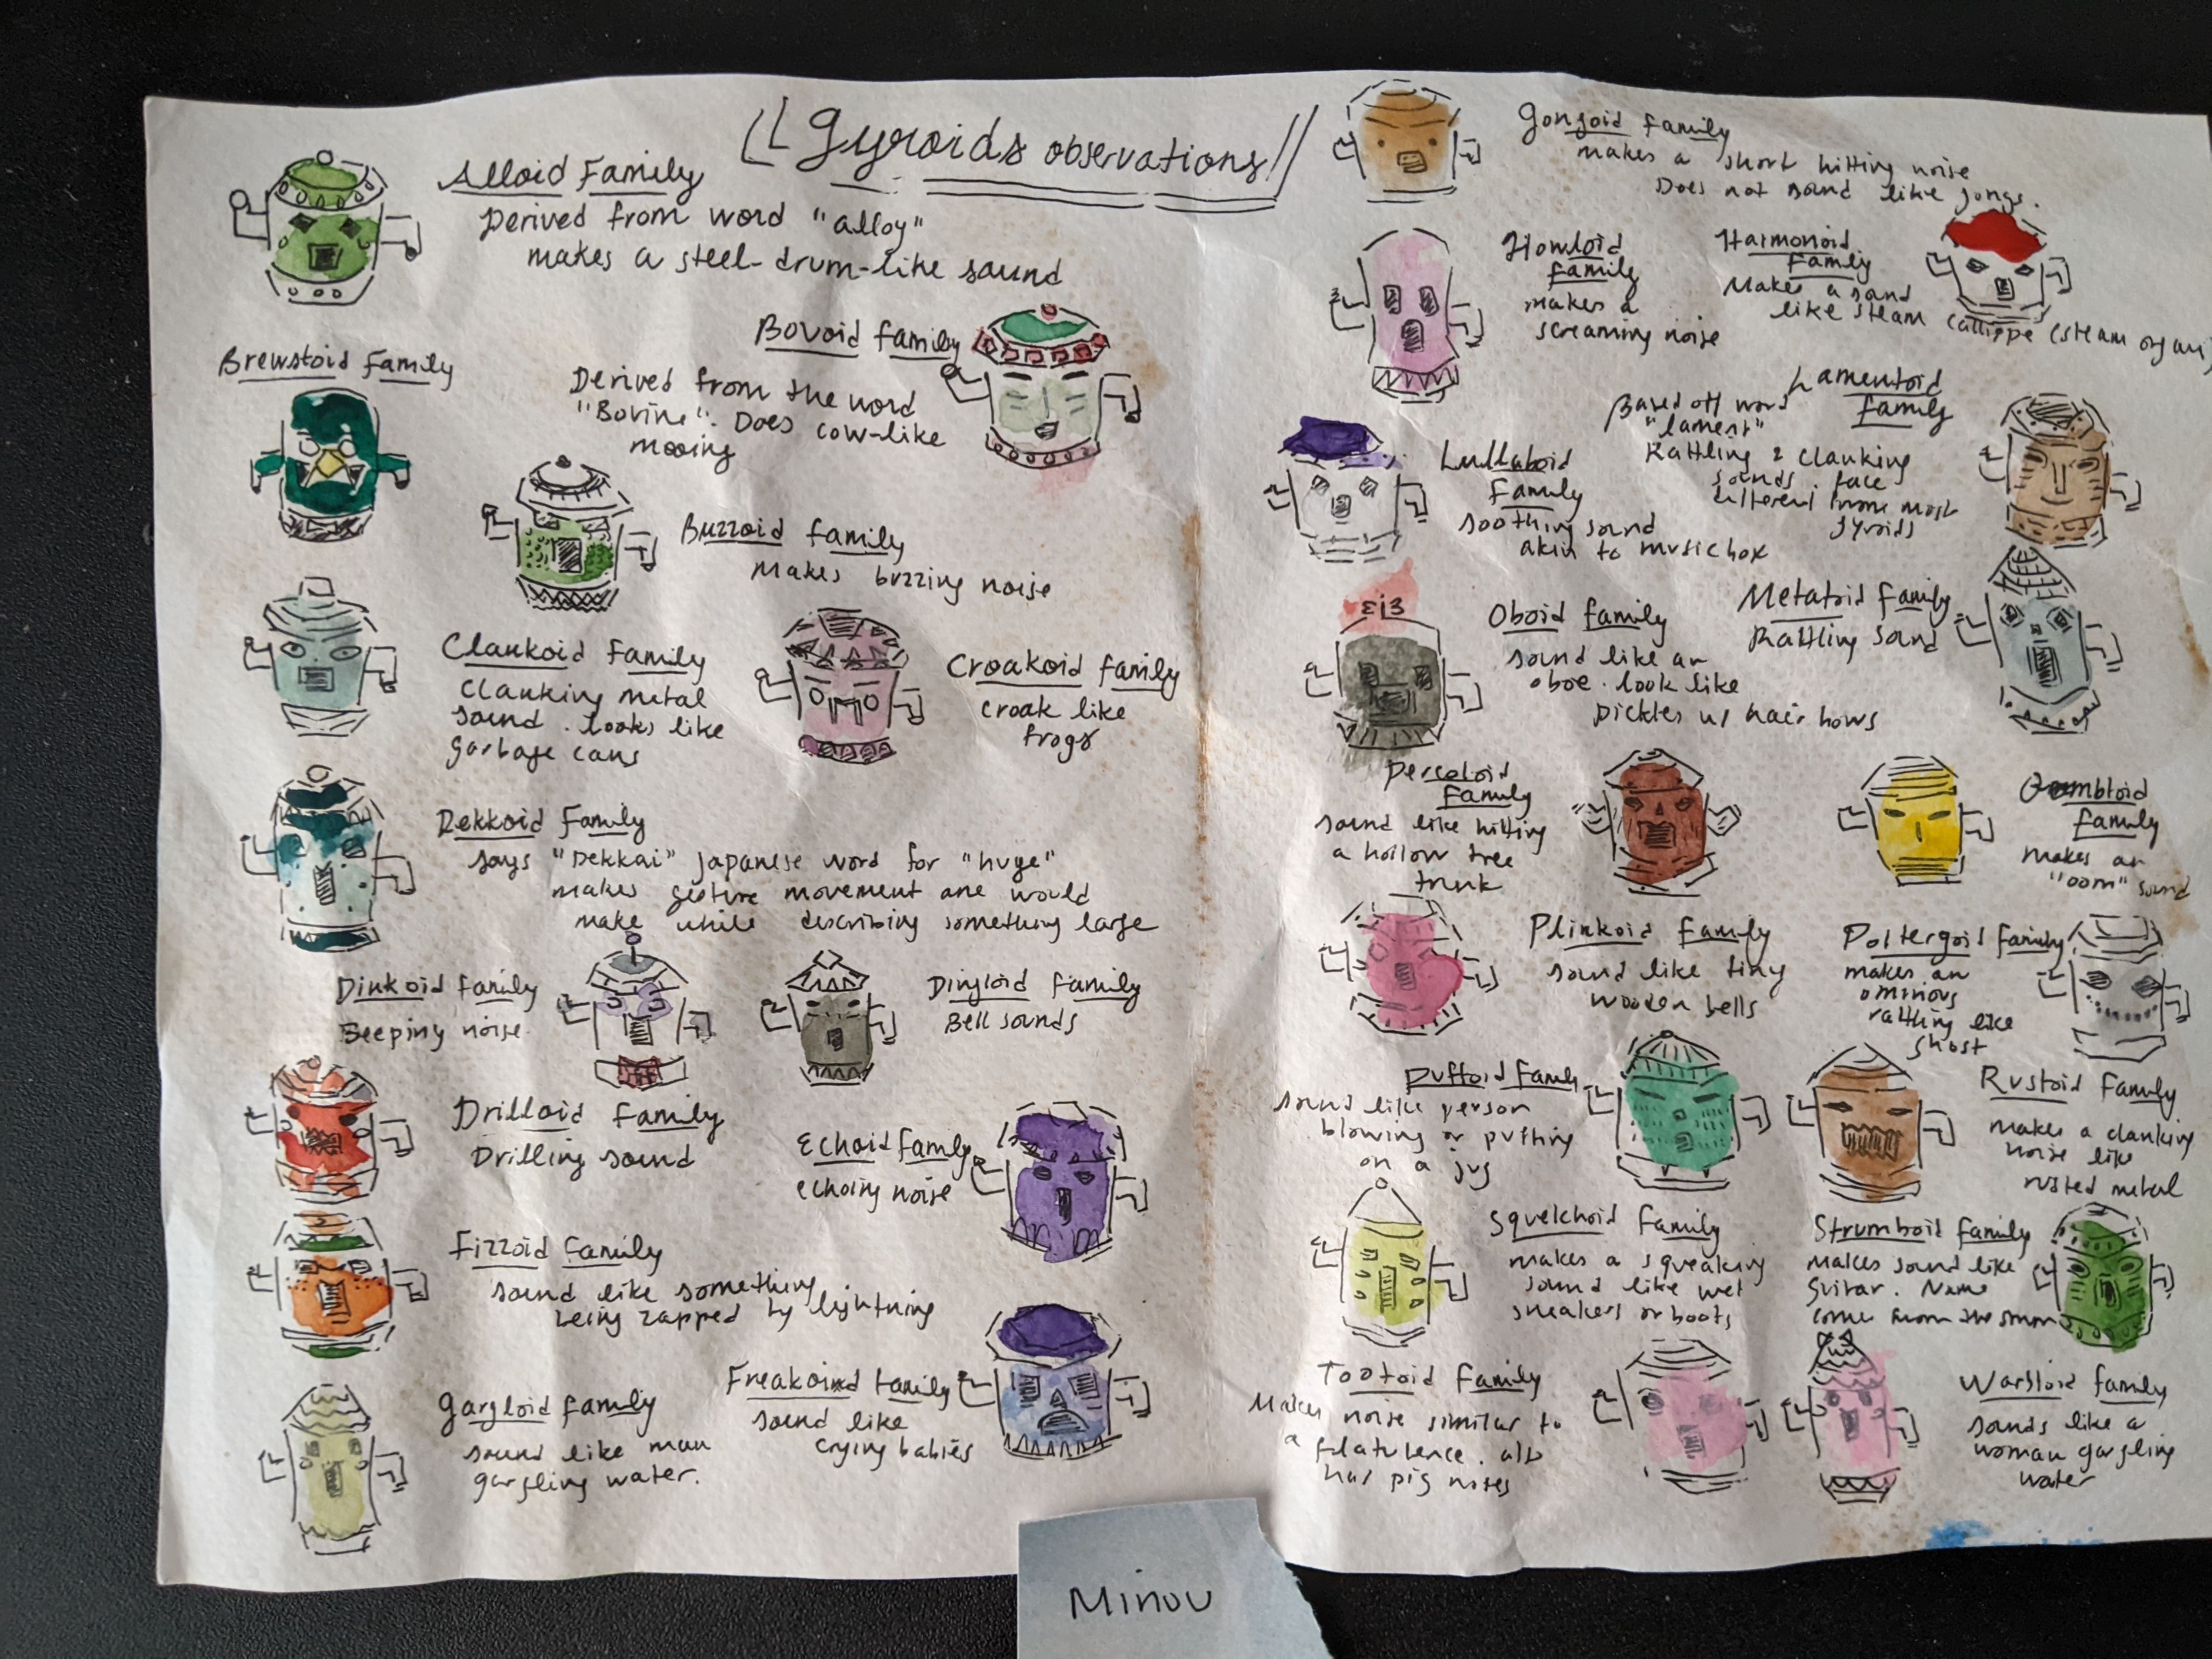 Gyroids observations
Alloid Family
Derived from word "alloy"
makes a steel-drum-like sound
Bovoid family
Derived from the word
"Bovine". Does cow-like
mooing
Brewstoid Family
Buzzoid family
makes buzzing noise
Clankoid Family
Clanking metal
sound. Looks like
garbage cans
Croakoid family
croak like
frogs
Dekkoid Family
says "Dekkai" japanese word for "huge"
makes gesture movement one would
make while describing something large
Dinkoid family
Beeping noise
Dingloid family
Bell sounds
Drilloid family
Drilling sound
Echoid family
echoing noise
Fizzoid family
sound like something
being zapped by lightning
Freakoid family
sound like
crying babies
Gargloid family
sound like man
gargling water.
Gongoid family
makes a short hitting noise
Does not sound like gongs.
Howloid
family
makes a
screaming noise
Harmonoid
family
Makes a sound
like steam calliope (steam organ)
Lamentoid
family
Based off word
"lament"
Rattling & clanking
sounds. face
different from most
gyroids
Lullaboid
family
soothing sound
akin to musicbox
Metatoid family
Rattling sound
Oboid family
sound like an
oboe. look like
pickles w/ hair bows
Percoloid
family
sound like hitting
a hollow tree
trunk
Oombloid
family
makes an
"oom" sound
Plinkoid family
sound like tiny
wooden bells
Poltergoid family
makes an
ominous
rattling like
ghost
Puffoid family
sound like person
blowing or puffing
on a jug
Rustoid family
makes a clanking
noise like
rusted metal
Squelchoid family
makes a squeaking
sound like wet
sneakers or boots
Strumboid family
makes sound like
guitar. Name
come from the strum
Tootoid family
Makes noise similar to
a flatulence. also
has pig noses
Warbloid family
sounds like a
woman gargling
water
Minou